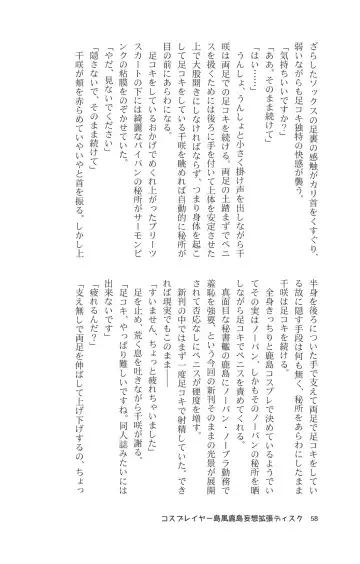 ざらしたソックスの足裏の感触がカリ首をくすぐり、
弱いながらも足コキ独特の快感が襲う。
「気持ちいいですか？」
「ああ。そのまま続けて」
「はい……」
うんしょ、うんしょと小さく掛け声を出しながら千
咲は両足での足コキを続ける。両足の土踏まずでペニ
スを扱くためには後ろに手を付いて上体を安定させた
上で大股開きにしなければならず、つまり身体を起こ
して足コキをしている千咲を眺めれば自動的に秘所が
目の前にあらわになる。
足コキをしているおかげでめくれ上がったプリーツ
スカートの下には綺麗なパイパンの秘所がサーモンピ
ンクの粘膜をのぞかせていた。
「やだ、見ないでください」
「隠さないで、そのまま続けて」
千咲が頬を赤らめていやいやと首を振る。しかし上
半身を後ろについた手で支えて両足で足コキをしてい
る故に隠す手段は何も無く、秘所をあらわにしたまま
千咲は足コキを続ける。
全身きっちりと鹿島コスプレで決めているようでい
てその実はノーパン、しかもそのノーパンの秘所を晒
しながら足コキでペニスを責めてくれる。
真面目な秘書艦の鹿島にノーパン・ノーブラ勤務で
羞恥を強要、という今回の新刊そのままの光景が展開
されて否応なしにペニスが硬度を増す。
新刊の中ではまず一度足コキで射精していた。でき
れば現実でもこのまま――
「すいません、ちょっと疲れちゃいました」
足を止め、荒く息を吐きながら千咲が謝る。
「足コキ、やっぱり難しいですね。同人誌みたいには
出来ないです」
「疲れるんだ？」
「支え無しで両足を伸ばして上げ下げするの、ちょっ
コスプレイヤー島風鹿島妄想拡張ディスク 58